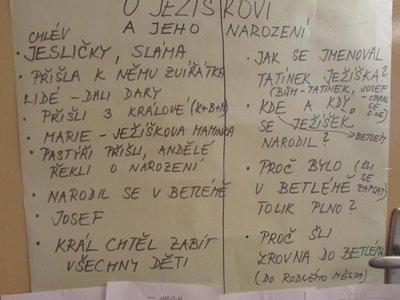 O JEŽÍŠKOVI
A JEHO NAROZENÍ
CHLÉV
• JESLIČKY, SLÁMA
• PŘIŠLA K NĚMU ZVÍŘÁTKA
LIDÉ - DALI DARY
• PŘIŠLI 3 KRÁLOVÉ (K+B+M)
• MARIE - JEŽÍŠKOVA MAMINKA
• PASTÝŘI PŘIŠLI, ANDĚLÉ
ŘEKLI O NAROZENÍ
• NARODIL SE V BETLÉMĚ
• JOSEF
• KRÁL CHTĚL ZABÍT
VŠECHNY DĚTI
• JAK SE JMENOVAL
TATÍNEK JEŽÍŠKA?
(BŮH - TATÍNEK, JOSEF - STARAL SE O NĚ)
• KDE A KDY
SE JEŽÍŠEK
NARODIL? BETLÉM
• PROČ BYLO (ŠLI SE ZAPSAT)
V BETLÉMĚ
TOLIK PLNO?
• PROČ ŠLI
ZROVNA DO BETLÉMA
(DO RODNÉHO MĚSTA)